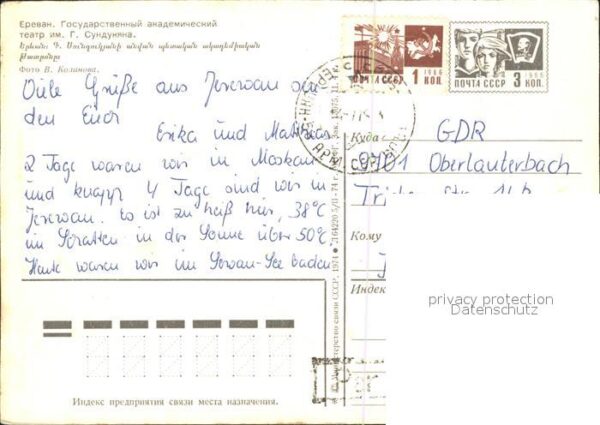 Ереван. Государственный академический
театр им. Г. Сундукяна.
Երևան: Գ. Սունդուկյանի անվան պետական ակադեմիական
թատրոնը
Фото В. Колинова.
Viele Grüße aus Jerewan
den Euch
Erika und Mathias
2 Tage waren wir in Moskau
und knapp 4 Tage sind wir in
Jerewan. Es ist zu heiß hier, 38°C
im Schatten in der Sonne über 50°C
Heute waren wir im Sewan-See baden
ПОЧТА СССР 1 КОП. 1966
ПОЧТА СССР 3 КОП. 1966
Куда
GDR
9701 Oberlauterbach
Кому
Индекс
Министерство связи СССР, 1974
privacy protection
Datenschutz
Индекс предприятия связи места назначения.